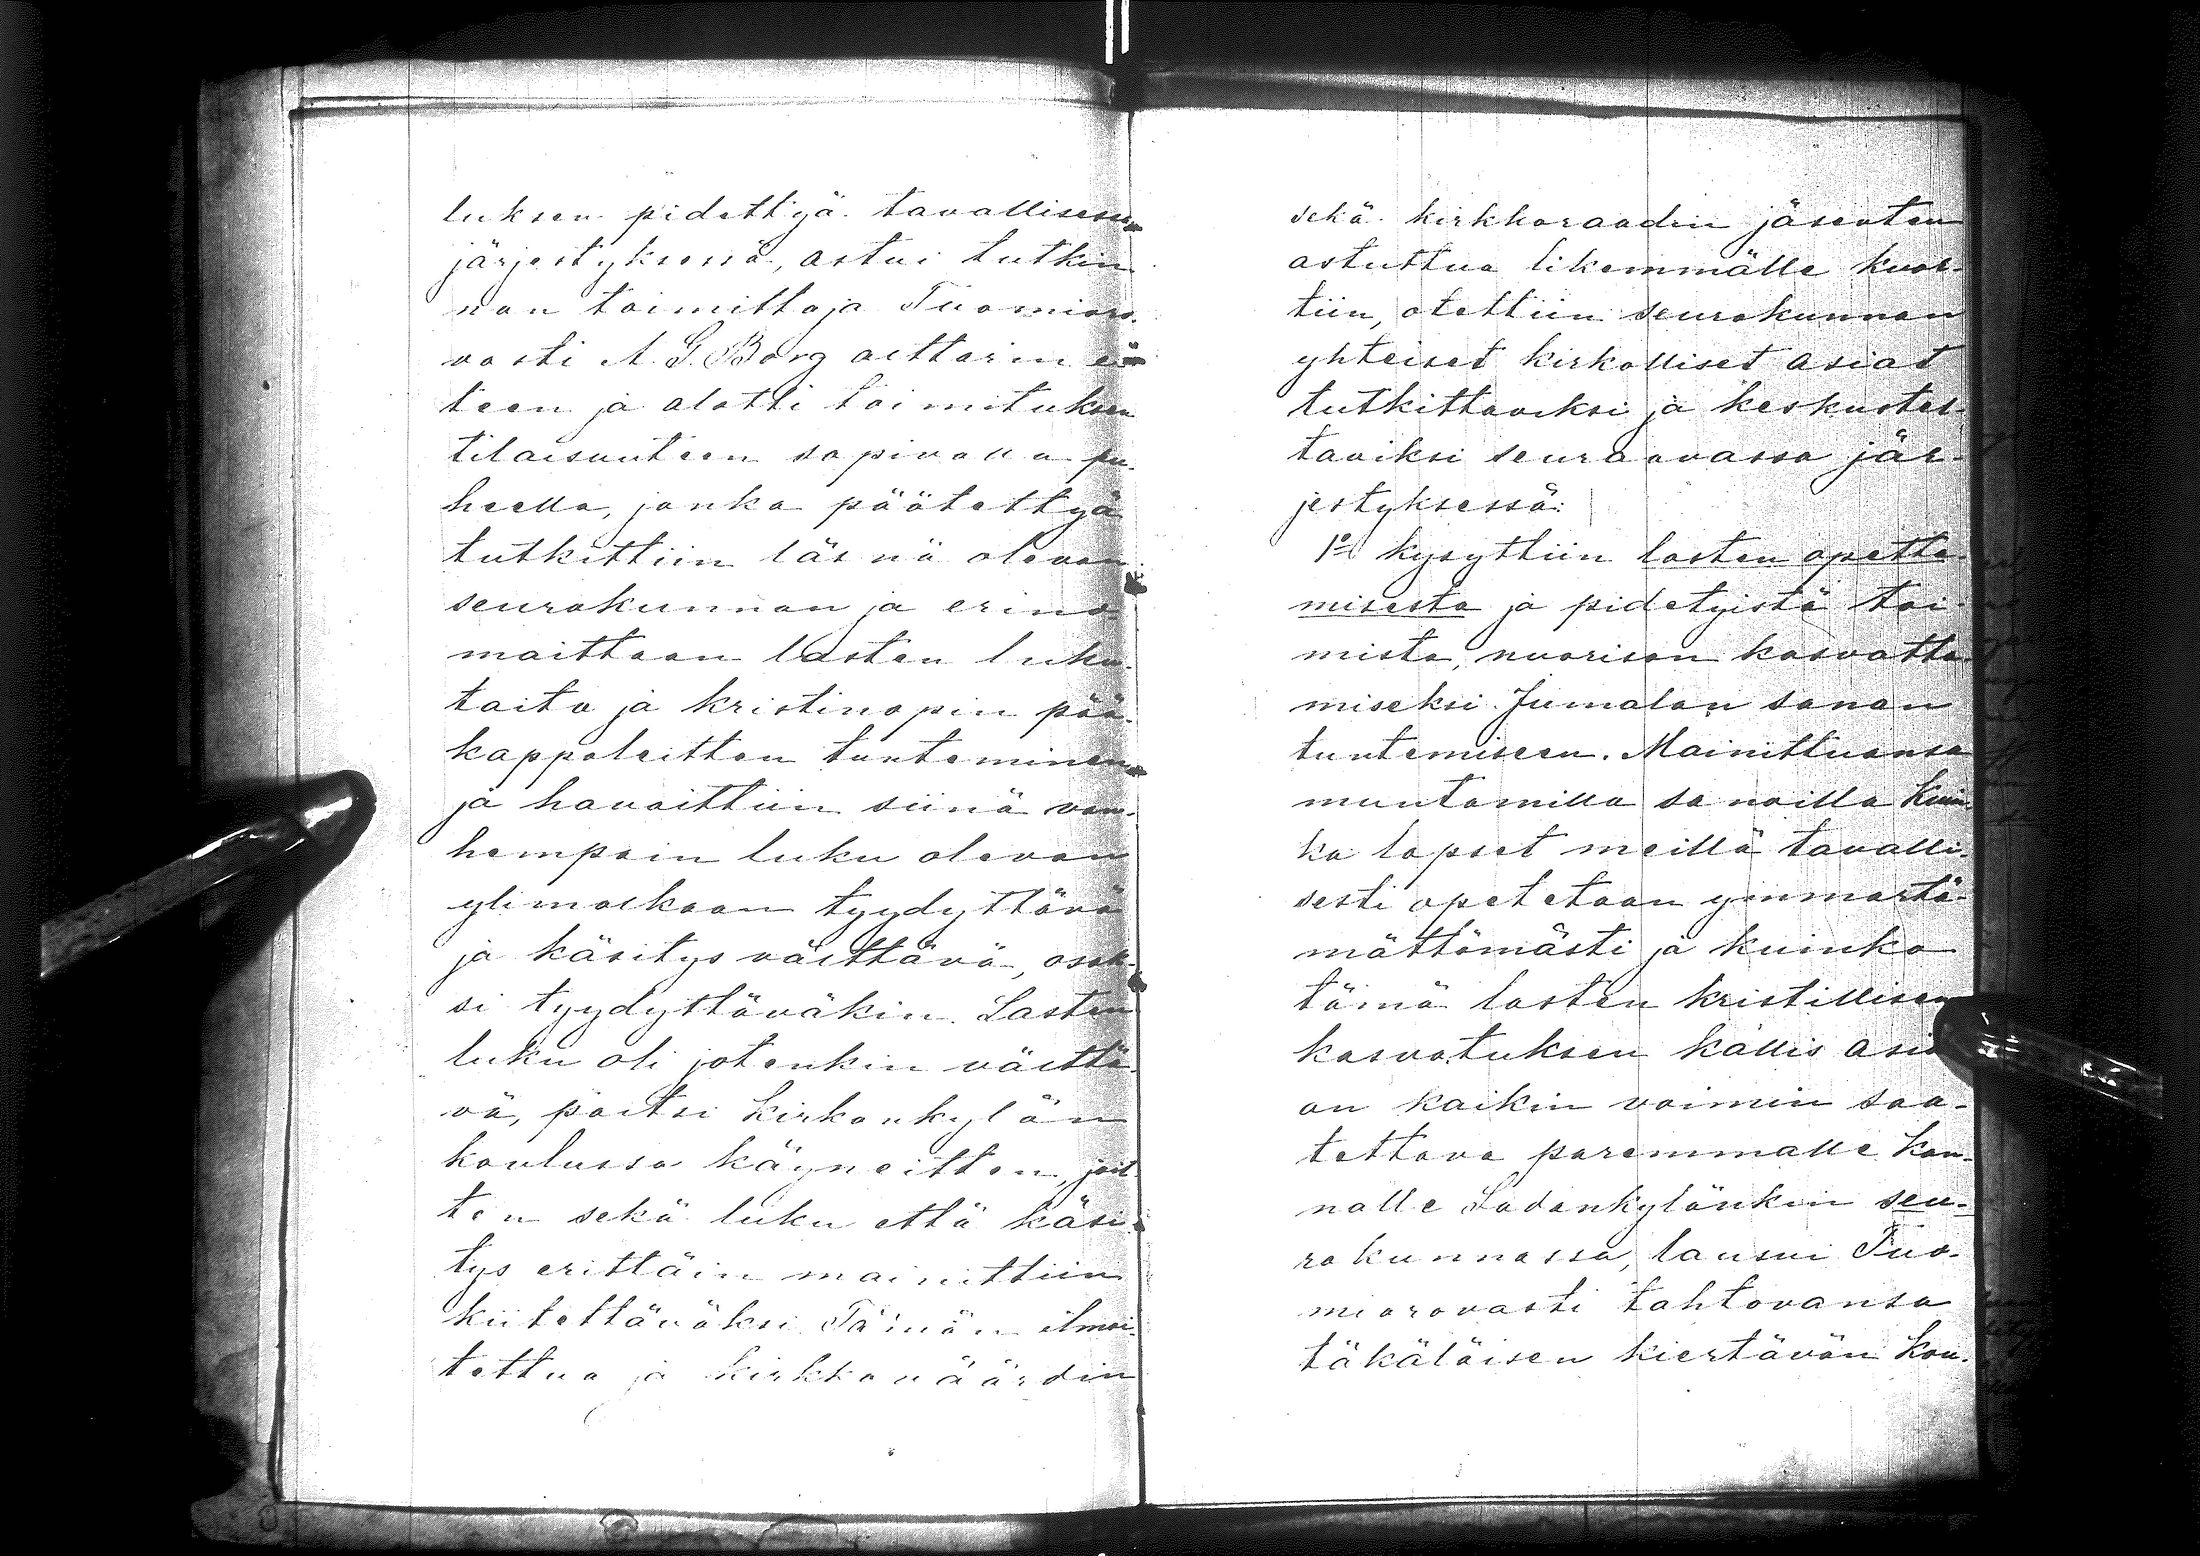 luksen pidettyä tavallisessa
järjestyksessä, astui tutkin
non toimittaja Tuomioro-
vasti A. G. Borg alttarin e-
teen ja alotti toimituksen
tilaisuuteen sopivalla pu-
heella, jonka päätettyä
tutkittiin läsnä olevan
seurakunnan ja erino-
maittaan lasten luku-
taito ja kristinopin pää-
kappaleitten tunteminen
ja havaittiin siinä van-
hempain luku olevan
ylimalkaan tyydyttävä
ja käsitys välttävä, osak-
si tyydyttäväkin. Lasten
luku oli jotenkin vältta-
vä, paitsi Kirkonkylän
koulussa käyneitten, joit-
ten sekä luku että käsi-
tys erittäin mainittiin
kiitettäväksi. Tämän ilmoi-
tettua ja kirkkoväärdin
sekä kirkkoraadin jäsenten
astuttua likemmälle kuor-
tiin, otettiin seurakunnan
yhteiset kirkolliset asiat
tutkittaviksi ja keskustel-
taviksi seuraavassa jär-
jestyksessä:
1o kysyttiin lasten opetta-
misesta ja pidetyistä toi-
mista, nuorison kasvatta-
miseksi Jumalan sanan
tuntemiseen. Mainittuansa
muutamilla sanoilla kuin-
ka lapset meillä tavalli-
sesti opetetaan ymmartä-
mättömästi ja kuinka
tämä lasten kristillisen
kasvatuksen kallis asia
on kaikin voimin saa-
tettava paremmalle kan-
nalle Sodankylänkin seu-
rakunnassa, lausui Tuo-
miorovasti tahtovansa
täkäläisen kiertävän kou-